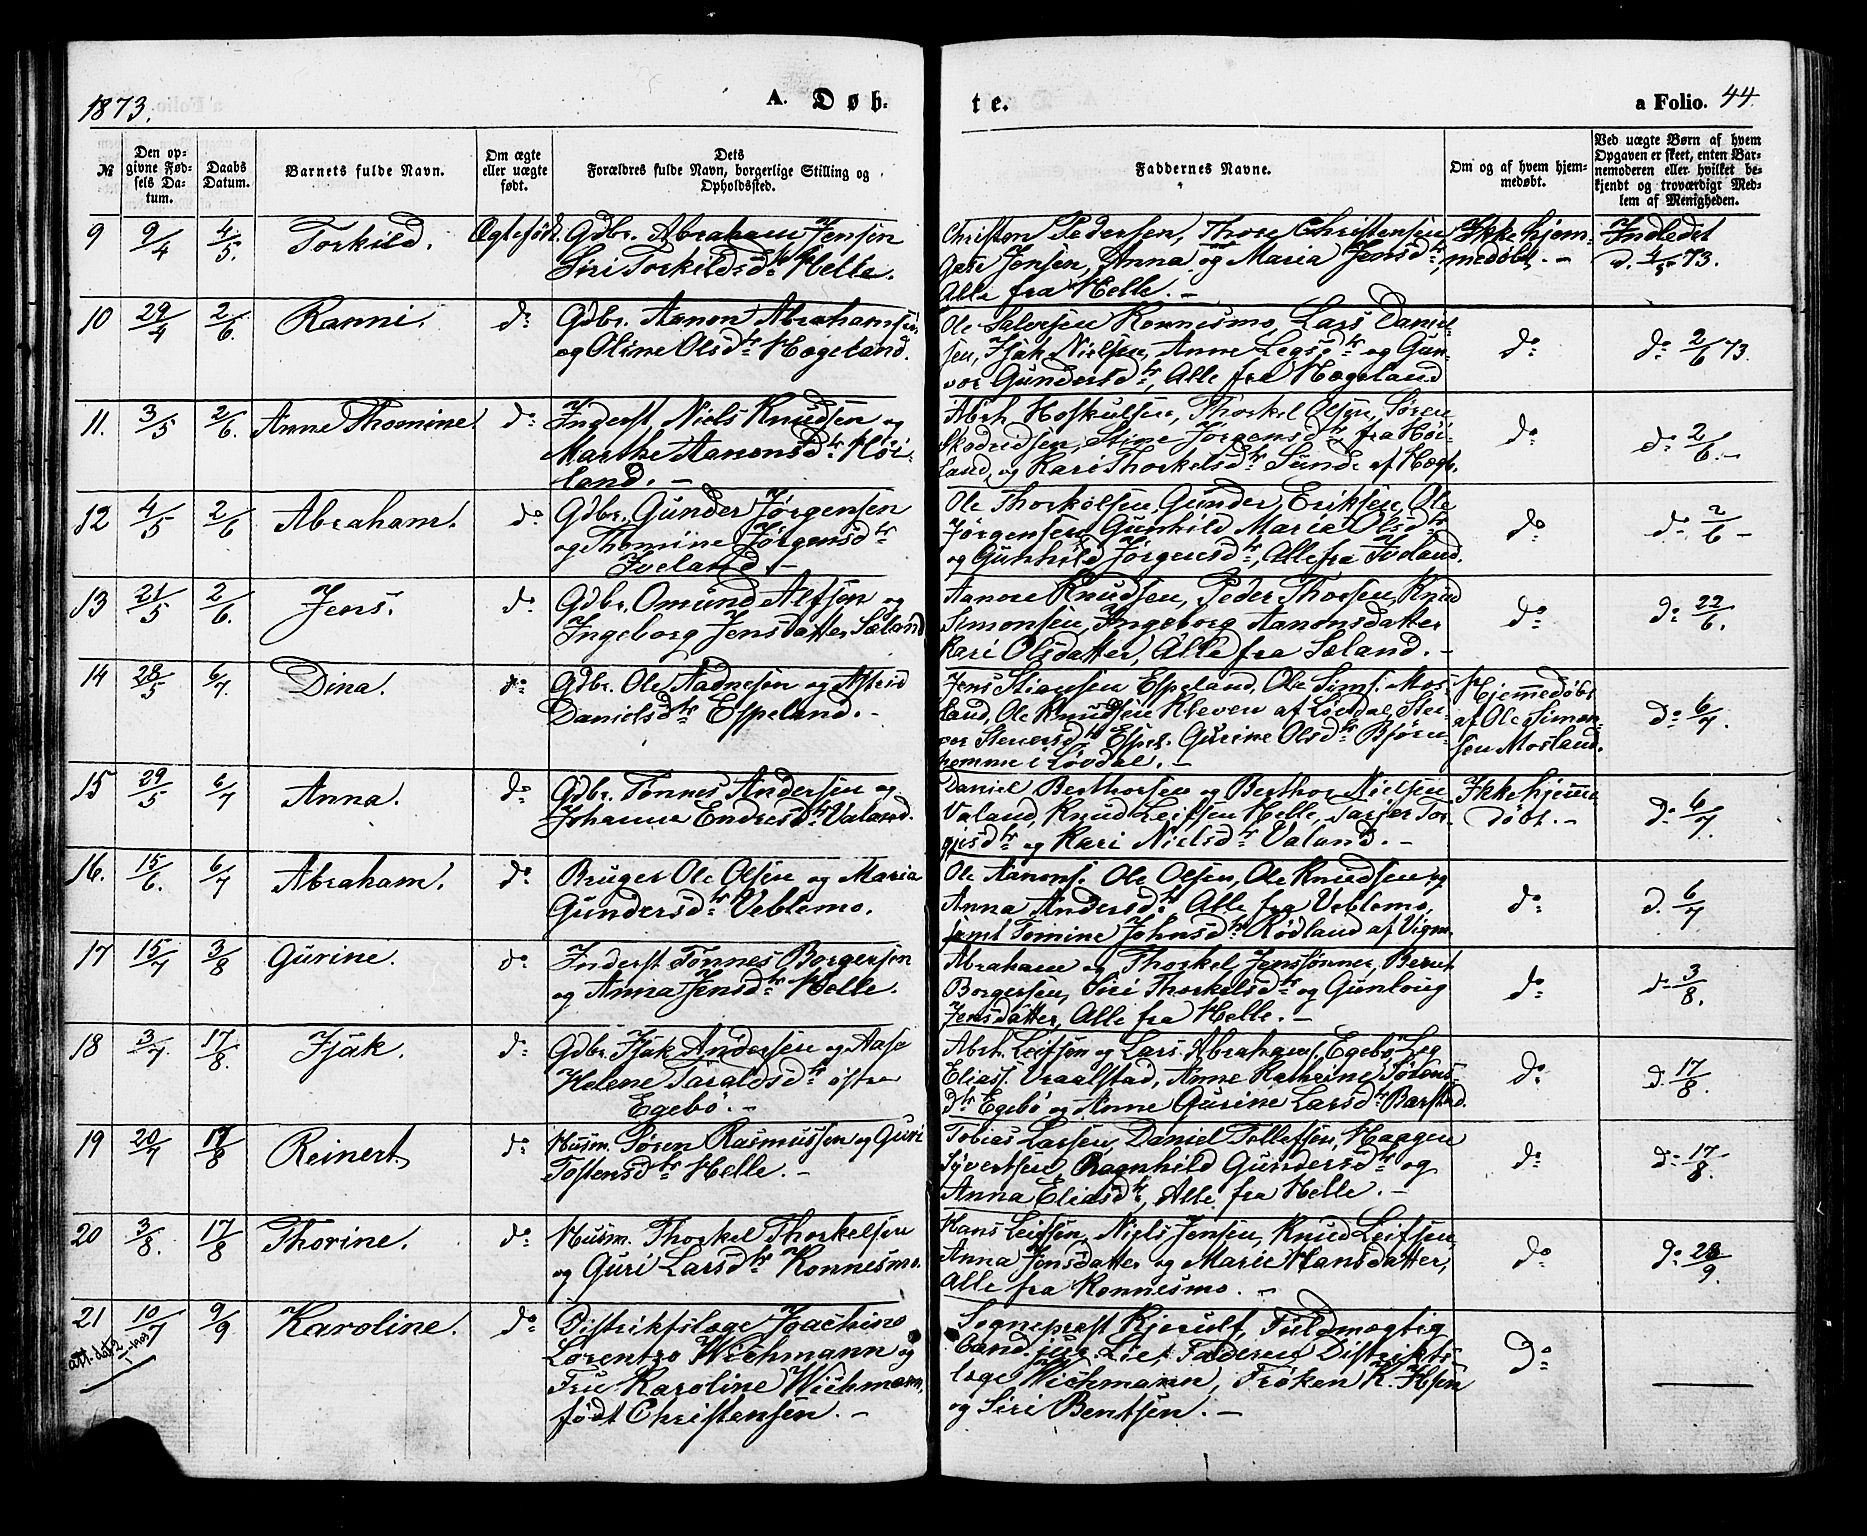 1873.
A. Døb-
te.
a Folio. 44.
№
Den opgivne Fødsels Datum.
Daabs Datum.
Barnets fulde Navn.
Om ægte eller uægte født.
Dets Forældres fulde Navn, borgerlige Stilling og Opholdssted.
Faddernes Navne.
Om og af hvem hjemmedøbt.
Ved uægte Børn af hvem Opgaven er skeet, enten Barnemoderen eller hvilket bekjendt og troværdigt Medlem af Menigheden.
9 9/4 4/5. Torkild. Ægtefødt. Gdbr. Abraham Jensen
Siri Torkildsdtr Helle.
Christen Pedersen, Thore Christensen
Jensen, Anna og Maria Jensdtr,
Alle fra Helle. -
Ikke hjem-
medøbt. -
Indledet
d. 4/5 73.
10 29/4 2/6. Ranni. do Gdbr. Aanon Abrahamsen
og Oline Olsdtr Hægeland.
Ole Salvesen Konnesmo, Lars Daniel-
sen, Isak Nielsen, Anne Legsdtr og Gun-
vor Gundersdtr, Alle fra Hægeland
do
do 2/6 73.
11. 3/5 2/6. Anne Thomine do Inderst Niels Knudsen og
Marthe Aanonsdtr Høi-
land. -
Abrh. Hoskulsen, Thorkel Olsen, Søren
Stine Jørgensdtr, fra Høi-
land, og Kari Thorkelsdtr Sunde af Hægl.
do
do 2/6. -
12 4/5 2/6 Abraham. do Gdbr. Gunder Jørgensen
og Thomine Jørgensdtr
Iveland. -
Ole Thorkelsen, Gunder Eriksen, Ole
Jørgensen, Gunhild Marie Olsdtr
og Gunhild Jørgensdtr, Alle fra Iveland.
do
do 2/6 -
13 21/5 2/6. Jens. do Gdbr. Omund Alfsen og
Ingeborg Jensdatter Sæland
Aanon Knudsen, Peder Thorsen, Knud
Simonsen, Ingeborg Aanonsdatter
Kari Olsdatter, Alle fra Sæland. -
do
do 22/6.
14 28/5 6/7. Dina. do Gdbr. Ole Nadnesen og Astrid
Danielsdtr Espeland. -
Jens Stiansen Espeland, Ole Sims. Mos-
land, Ole Knudsen Kleven af Løvdal,
Stenersdtr Espel. Gurine Olsdtr Bjørn-
homme i Løvdal. -
Hjemmedøbt
af Ole Simon-
sen Mosland.
do 6/7.
15 29/5 6/7 Anna. do Gdbr. Tønnes Andersen og
Johanne Endresdtr Valand.
Daniel Berthorsen og Berthor Nielsen
Valand, Knud Leifsen Helle, Tarjer Tor-
gjusdtr og Kari Nielsdtr Valand. -
Ikke hjemme
døbt. -
do 6/7.
16. 15/6. 6/7 Abraham. do Bruger Ole Olsen og Maria
Gundersdtr Veblemo.
Ole Aanons. Ole Olsen, Ole Knudsen og
Anna Andersdtr Alle fra Veblemo,
samt Tomine Johnsdtr Rødland af Vigm.
do
d. 6/7
17 15/7 3/8 Gurine. do Inderst Tønnes Borgersen
og Anna Jensdtr Helle.
Abraham og Thorkel Jenssønner, Berut
Borgersen, Siri Thorkelsdtr og Gunloug
Jensdatter, Alle fra Helle. -
do
do 3/8.
18 3/7. 17/8. Isak. do Gdbr. Isak Andersen og Aase
Helene Taraldsdtr østre
Egebø. -
Abrh. Leifsen og Lars Abrahams. Egebø, Leg
Eliass. Vraalstad, Anne Kathrine Sørens-
dtr Egebø og Anne Gurine Larsdtr Barstad.
do
d. 17/8.
19 20/7 17/8 Reinert. do Husm. Søren Rasmussen og Guri
Tostensdtr Helle. -
Tobias Larsen, Daniel Tellefsen, Haagen
Syvertsen, Ragnhild Gundersdtr og
Anna Eliasdtr, Alle fra Helle. -
do
do 17/8.
20 3/8. 17/8 Thorine. do Husm. Thorkel Thorkelsen
og Guri Larsdtr Konnesmo.
Hans Leifsen, Niels Jensen, Knud Leifsen,
Anna Jensdatter og Marie Hansdatter,
Alle fra Konnesmo. -
do
do 28/9.
21 10/7 9/9 Karoline. do Distriktslæge Joachim
att. dat. 2/1 1903
Lorentzo Wichmann og
Fru Karoline Wichmann,
født Christensen. -
Sogneprest Kjerulf, Fuldmægtig
Cand. jur. Lie, Faderen Distrikts-
læge Wichmann, Frøken K.
og Siri Bentsen. -
do